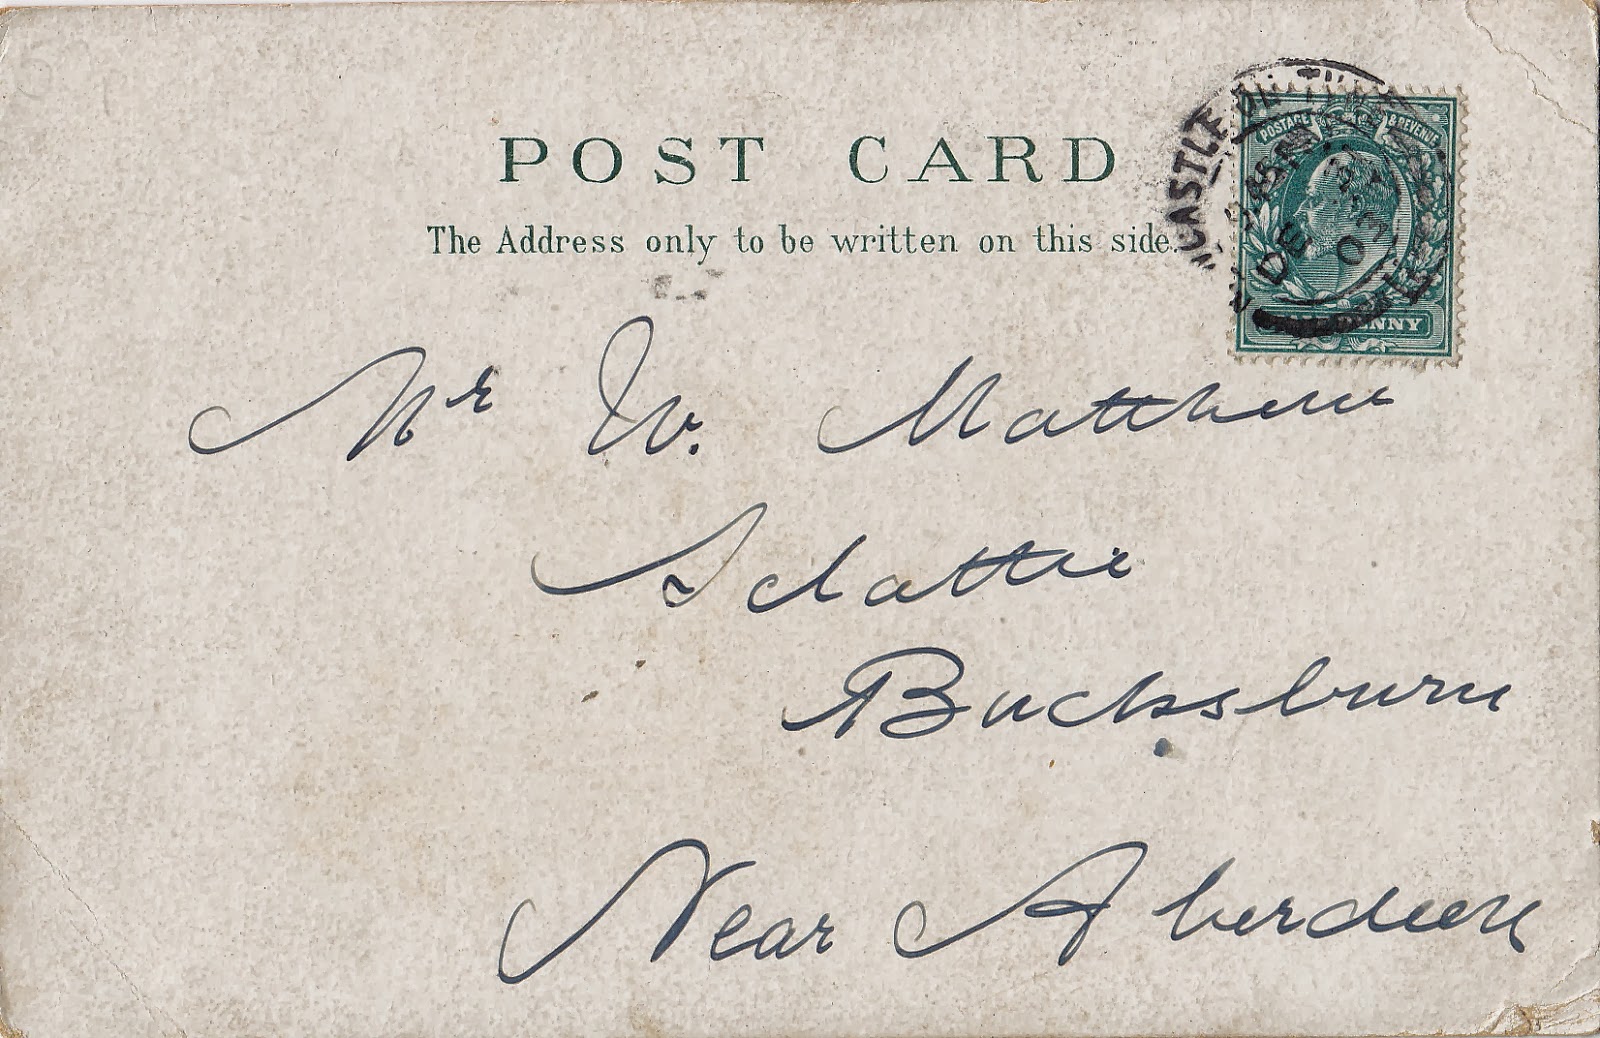 POST CARD
The Address only to be written on this side.
CASTLE ON TYNE
POSTAGE & REVENUE
DE
03
Mr W. Matthew
Sclattie
Bucksburn
Near Aberdeen